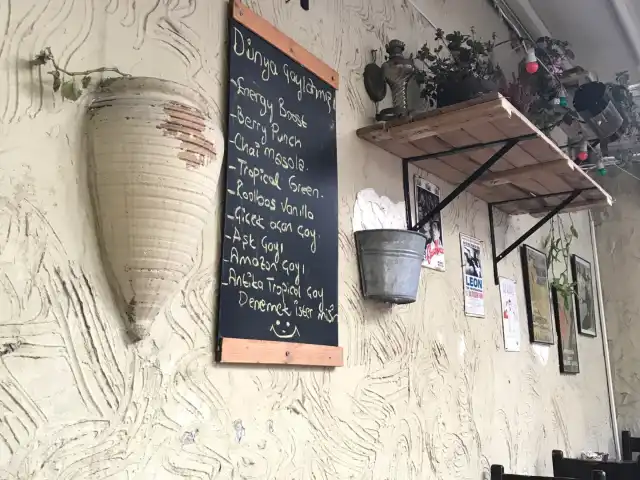 Dünya Çaylarımız
-Energy Boost
-Berry Punch
-Chai Masala.
-Tropical Green.
-Rooibos Vanilla
-Çiçek açan çay.
-Aşk Çayı
-Amazon Çayı
-Antika Tropical Çay
Denemek ister misin
LEON